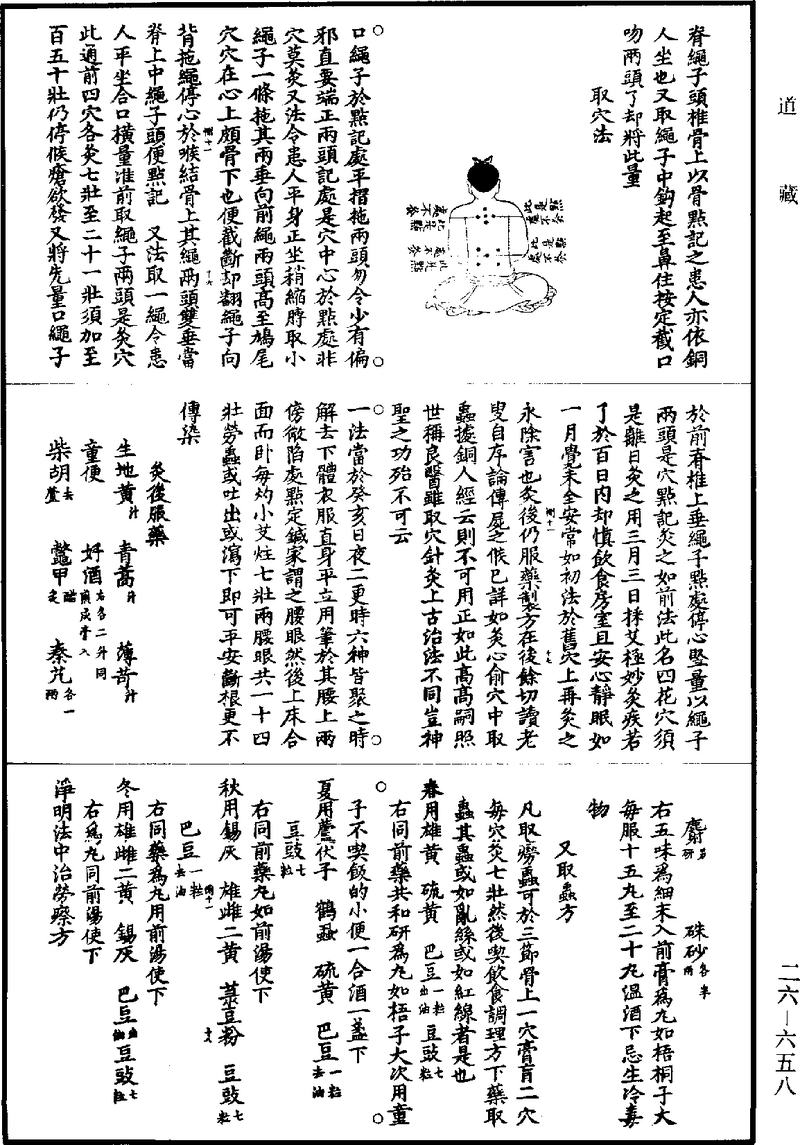 道藏
脊繩子頭椎骨上以骨點記之患人亦依銅
人坐也又取繩子中鈎起至鼻住按定截口
吻兩頭了却將此量
取穴法
此是點
不灸
此是點
處不灸
口繩子於點記處平摺拖兩頭勿令少有偏
邪直要端正兩頭記處是穴中心於點處非
穴莫灸又法令患人平身正坐稍縮膊取小
繩子一條拖其兩垂向前繩兩頭高至鳩尾
穴穴在心上頗骨下也便截斷却翻繩子向
背拖繩停心於喉結骨上其繩兩頭雙垂當
脊上中繩子頭便點記　又法取一繩令患
人平坐合口横量准前取繩子兩頭是灸穴
此通前四穴各灸七壯至二十一壯須加至
百五十壯仍停候瘡欲發又將先量口繩子
於前脊椎上垂繩子點處停心竪量以繩子
兩頭是穴點記灸之如前法此名四花穴須
是離日灸之用三月三日採艾極妙灸疾若
了於百日内却慎飲食房室且安心靜眠如
一月覺未全安當如初法於舊穴上再灸之
永除害也灸後仍服藥製方在後餘切讀老
叟自序論傳屍之候已詳如灸心俞穴中取
蟲據銅人經云則不可用正如此高高嗣照
世稱良醫雖取穴針灸上古治法不同豈神
聖之功殆不可云
一法當於癸亥日夜二更時六神皆聚之時
解去下體衣服直身平立用筆於其腰上兩
傍微陷處點定鍼家謂之腰眼然後上床合
面而卧每灼小艾炷七壯兩腰眼共一十四
壯勞蟲或吐出或瀉下即可平安斷根更不
傳染
灸後服藥
生地黄汁　青蒿汁　薄荷汁
童便　好酒右各二升同
柴胡去蘆　鼈甲醋炙　秦艽各一兩
麝香　硃砂各半兩
右五味爲細末入前膏爲丸如梧桐子大
每服十五丸至二十丸温酒下忌生冷毒
物
又取蟲方
凡取癆蟲可於三節骨上一穴膏肓二穴
每穴灸七壯然後喫飲食調理方下藥取
蟲其蟲或如亂絲或如紅線者是也
春用雄黄　硫黄　巴豆一粒去油　豆豉七粒
右同前藥共和研爲丸如梧子大次用童
子不喫飯的小便一合酒一盞下
夏用蘆伏子　鶴蝨　硫黄　巴豆一粒去油
豆豉七粒
右同前藥丸如前湯使下
秋用錫灰　雄雌二黄　菉豆粉　豆豉七粒
巴豆一粒去油
右同藥爲丸用前湯使下
冬用雄雌二黄　錫灰　巴豆去油　豆豉七粒
右爲丸同前湯使下
淨明法中治勞瘵方
二六—六五八